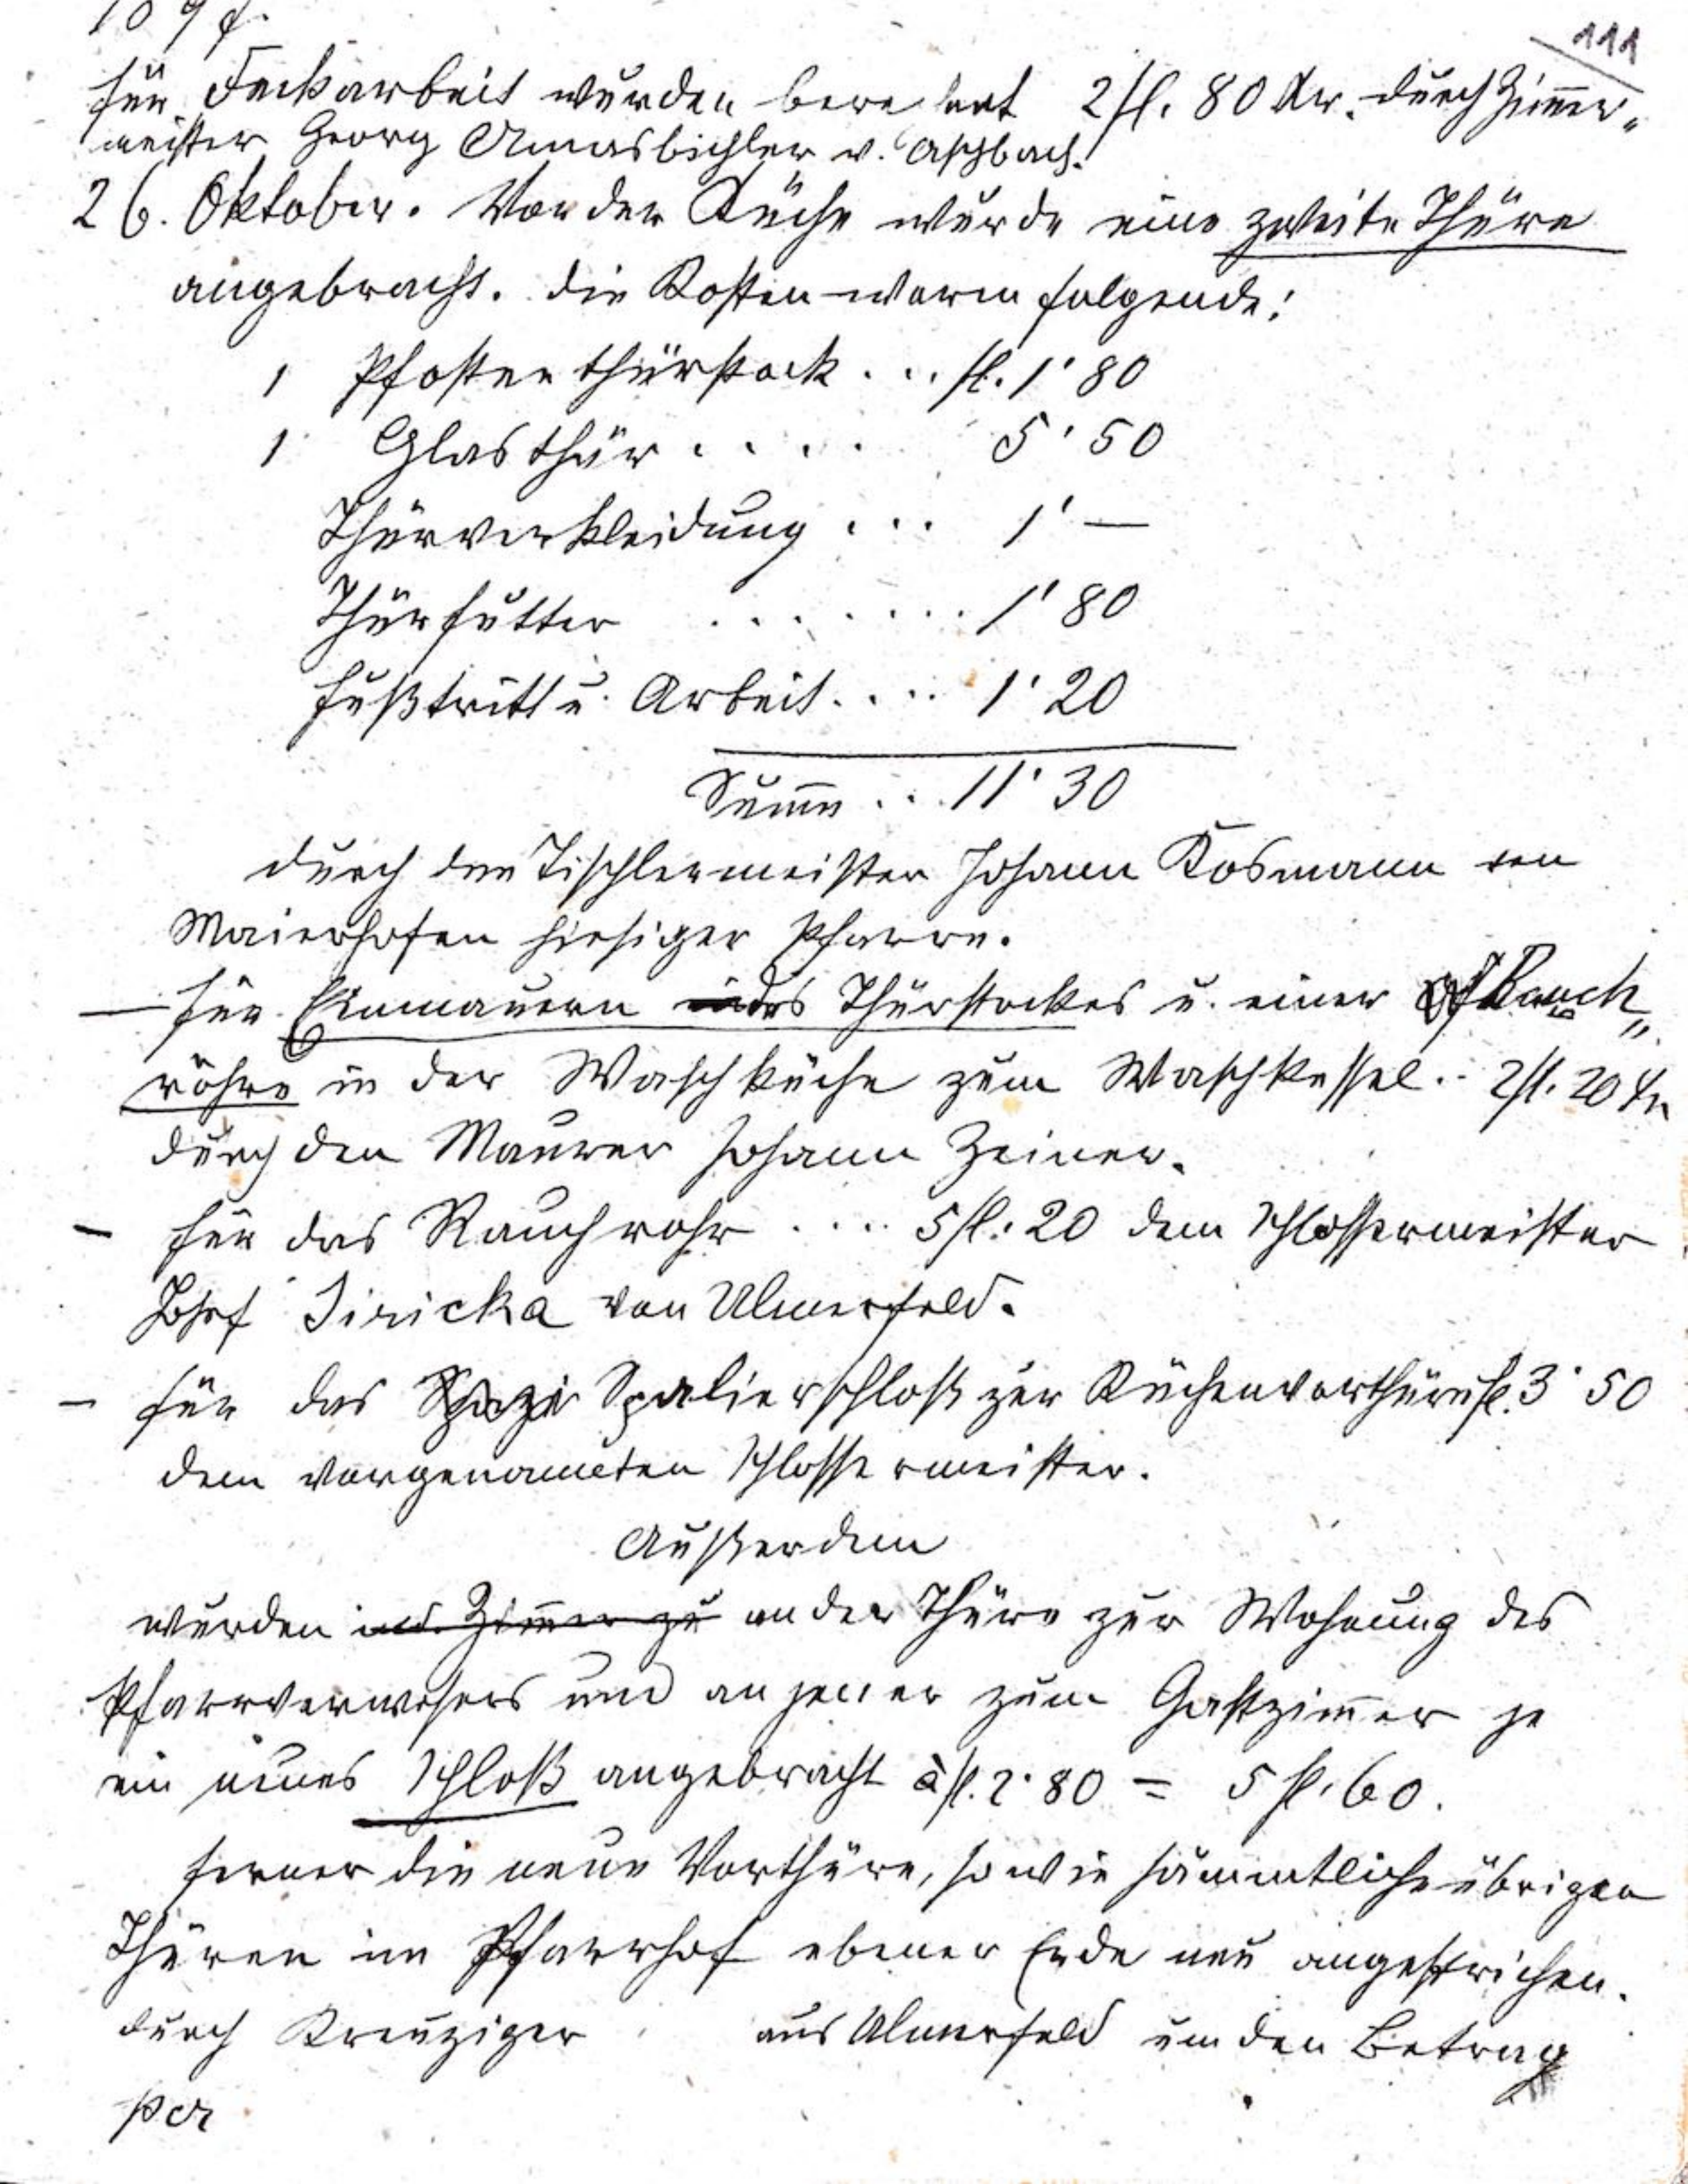 111
für Deckarbeit wurden berechnet 2 fl. 80 Kr. durch Zimmer„
meister Georg Amasbichler v. Aschbach.
26. Oktober. Vor der Küche wurde eine zweite Thüre
angebracht. Die Kosten waren folgende:
1 Pfostenthürstock ... fl. 1'80
1 Glasthür .... 5'50
Thürverkleidung ... 1'—
Thürfutter ........ 1'80
Fußtritt u. Arbeit .... 1'20
Summe ... 11'30
durch den Tischlermeister Johann Kosmann von
Maierhofen hiesiger Pfarre.
— Für Einmauern des Thürstockes u. einer Rauch„
röhre in der Waschküche zum Waschkessel .. 2 fl. 20 Kr
durch den Maurer Johann Zeiner.
- für das Rauchrohr .... 5 fl. 20 dem Schlossermeister
Josef Jiricka von Ulmerfeld.
- für das Spalierschloß zur Küchenvorthüre fl. 3'50
dem vorgenannten Schlossermeister.
Außerdem
wurden in d. Zimmer zu an der Thüre zur Wohnung des
Pfarrverwesers und an jener zum Gastzimmer je
ein neues Schloß angebracht à fl. 2'80 = 5 fl. 60.
ferner die neue Vorthüre, sowie sämmtliche übrigen
Thüren im Pfarrhof ebener Erde neu angestrichen.
durch Kreuziger aus Ulmerfeld um den Betrag
per